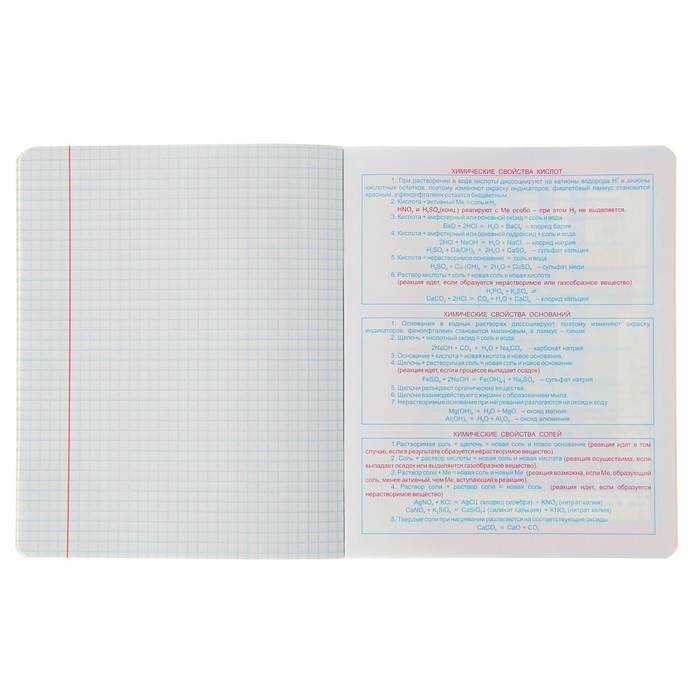 ХИМИЧЕСКИЕ СВОЙСТВА КИСЛОТ
1. При растворении в воде кислоты диссоциируют на катионы водорода H⁺ и анионы
кислотных остатков, поэтому изменяют окраску индикаторов: фиолетовый лакмус становится
красным, а фенолфталеин остается бесцветным.
2. Кислота + активный Ме = соль и H₂
HNO₃ и H₂SO₄(конц.) реагируют с Ме особо – при этом H₂ не выделяется.
3. Кислота + амфотерный или основной оксид = соль и вода
BaO + 2HCl = H₂O + BaCl₂ – хлорид бария
4. Кислота + амфотерный или основной гидроксид = соль и вода
2HCl + NaOH = H₂O + NaCl – хлорид натрия
H₂SO₄ + Ca(OH)₂ = 2H₂O + CaSO₄ – сульфат кальция
5. Кислота + нерастворимое основание = соль и вода
H₂SO₄ + Cu (OH)₂ = 2H₂O + CuSO₄ – сульфат меди
6. Раствор кислоты + соль = новая соль и новая кислота
(реакция идет, если образуется нерастворимое или газообразное вещество)
H₃PO₄ + K₂SO₄ ≠
CaCO₃ + 2HCl = CO₂ + H₂O + CaCl₂ – хлорид кальция
ХИМИЧЕСКИЕ СВОЙСТВА ОСНОВАНИЙ
1. Основания в водных растворах диссоциируют, поэтому изменяют окраску
индикаторов: фенолфталеин становится малиновым, а лакмус – синим.
2. Щелочь + кислотный оксид = соль и вода
2NaOH + CO₂ = H₂O + Na₂CO₃ – карбонат натрия
3. Основание + кислота = новая кислота и новое основание.
4. Щелочь + растворимая соль = новая соль и новое основание
(реакция идет, если в процессе выпадает осадок)
FeSO₄ + 2NaOH = Fe(OH)₂↓ + Na₂SO₄ – сульфат натрия
5. Щелочи разъедают органические вещества.
6. Щелочи взаимодействуют с жирами с образованием мыла.
7. Нерастворимые основания при нагревании разлагаются на оксид и воду
Mg(OH)₂ = H₂O + MgO – оксид магния
Al(OH)₃ = H₂O + Al₂O₃ – оксид алюминия
ХИМИЧЕСКИЕ СВОЙСТВА СОЛЕЙ
1.Растворимая соль + щелочь = новая соль и новое основание (реакция идет в том
случае, если в результате образуется нерастворимое вещество).
2. Соль + раствор кислоты = новая соль и новая кислота (реакция осуществима, если
выпадает осадок или выделяется газообразное вещество).
3. Раствор соли + Ме = новая соль и новый Ме (реакция возможна, если Ме, образующий
соль, менее активный, чем Ме, вступающий в реакцию).
4. Раствор соли + раствор соли = новая соль (реакция идет, если образуется
нерастворимое вещество)
AgNO₃ + KCl = AgCl↓ (хлорид серебра) + KNO₃ (нитрат калия)
CaNO₃ + K₂SiO₃ = CaSiO₃↓ (силикат кальция) + KNO₃ (нитрат калия)
5. Твердые соли при нагревании разлагаются на соответствующие оксиды
CaCO₃ = CaO + CO₂